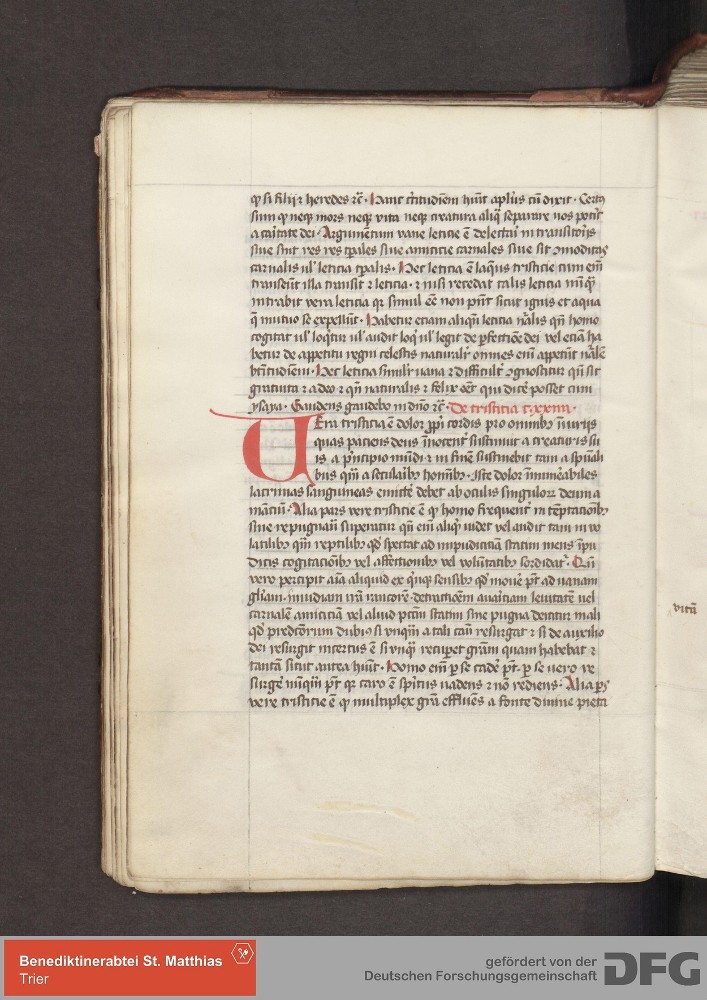 ꝙ si filij ⁊ heredes ⁊c̄ . Hanc c̄titudiēm hūit apl̄us cū dixit . Certꝯ
sum ꝙ neqꝫ mors neqꝫ vita neqꝫ creatura aliq̄ separare nos pot̄it
a caritate dei . Argumentum vane leticie ē delectari in transitorijs
siue sint res t̄pales siue amicicie carnales siue sit ꝯmoditas
carnalis ul̓ leticia t̄palis . Hec leticia ē laqueꝯ tristicie cum em̄
transeūt illa transit ⁊ leticia . ⁊ nisi recedat talis leticia nūq̄
intrabit vera leticia qꝛ simul eē non pn̄t sicut ignis et aqua
q̄ mutuo se expellūt . Habetur etiam aliqn̄ leticia nālis qn̄ homo
cogitat ul̓ loq̄tur ul̓ audit loq̄ ul̓ legit de ꝑfectiōe dei vel etiā ha
betur de appetitu regni celestis naturalr̄ omnes em̄ appetūt nālē
btītudinē . Hec leticia similr̄ uana ⁊ difficult̄ ꝯgnoscitur qn̄ sit
gratuita ⁊ a deo ⁊ qn̄ naturalis ⁊ felix eēt qui dicē posset cum
ysaya . Gaudens gaudebo in dn̄o ⁊c̄ . De tristicia c . xxiiii .
UEra tristicia ē dolor ꝓprij cordis pro omnibꝫ iniurijs
quas paciens deus īnocent̄ sustinuit a creaturis su
is a pͥncipio mūdi ⁊ in finē sustinebit tam a spūali
bus qm̄ a secularibꝫ hominibꝫ . Iste dolor īnumeābiles
lacrimas sanguineas emitte debet ab oculis singulorꝝ deum a
mantiū . Alia pars vere tristicie ē ꝙ homo frequent̄ in temptationibꝫ
siue repugnanti superatur qn̄ em̄ aliqͥ uidet vel audit tam in vo
latilibꝫ qm̄ reptilibꝫ qd̓ spectat ad impudiciciā statim mens īpu
dicis cogitacionibꝫ vel affectionibꝫ vel voluntatibꝫ sordidat᷑ . Qn̄
vero percipit aīa aliquid ex qͥnqꝫ sensibꝫ qd̓ mouē pt̄ ad uanam
gl̄iam . inuidiam irā rancorē . detractiōem auaritiam leuitatē uel
carnalē amiciciā vel aliud pctm̄ statim sine pugna dentur mali
qd̓ peccatorum dubiꝯ si vnqm̄ a tali casu resurgat ⁊ si de auxilio
dei resurgit incertus ē si vnqͣ recuperet gr̄am quam habebat ⁊
tantā sicut antea hūit . Homo em̄ ꝑ se cadē pt̄ . ꝑ se uero re
surgē nūqm̄ pt̄ qꝛ caro ē spiritus uadens ⁊ nō rediens . Alia pars
vere tristicie ē ꝙ multiplex gr̄a effluēs a fonte diuine pieta
vitā
Benediktinerabtei St. Matthias
Trier
gefördert von der
Deutschen Forschungsgemeinschaft
DFG